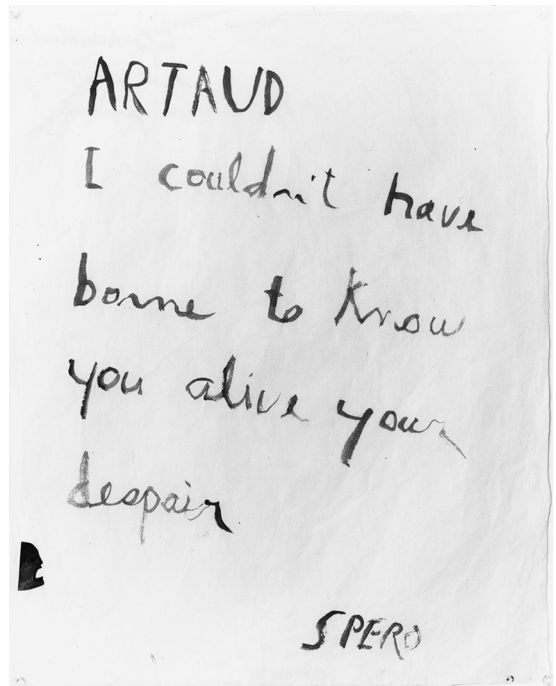 ARTAUD
I couldn't have
borne to know
you alive your
despair
SPERO